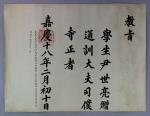 敎旨
學生尹世亮贈
通訓大夫司僕
寺正者
嘉慶十八年二月初十日